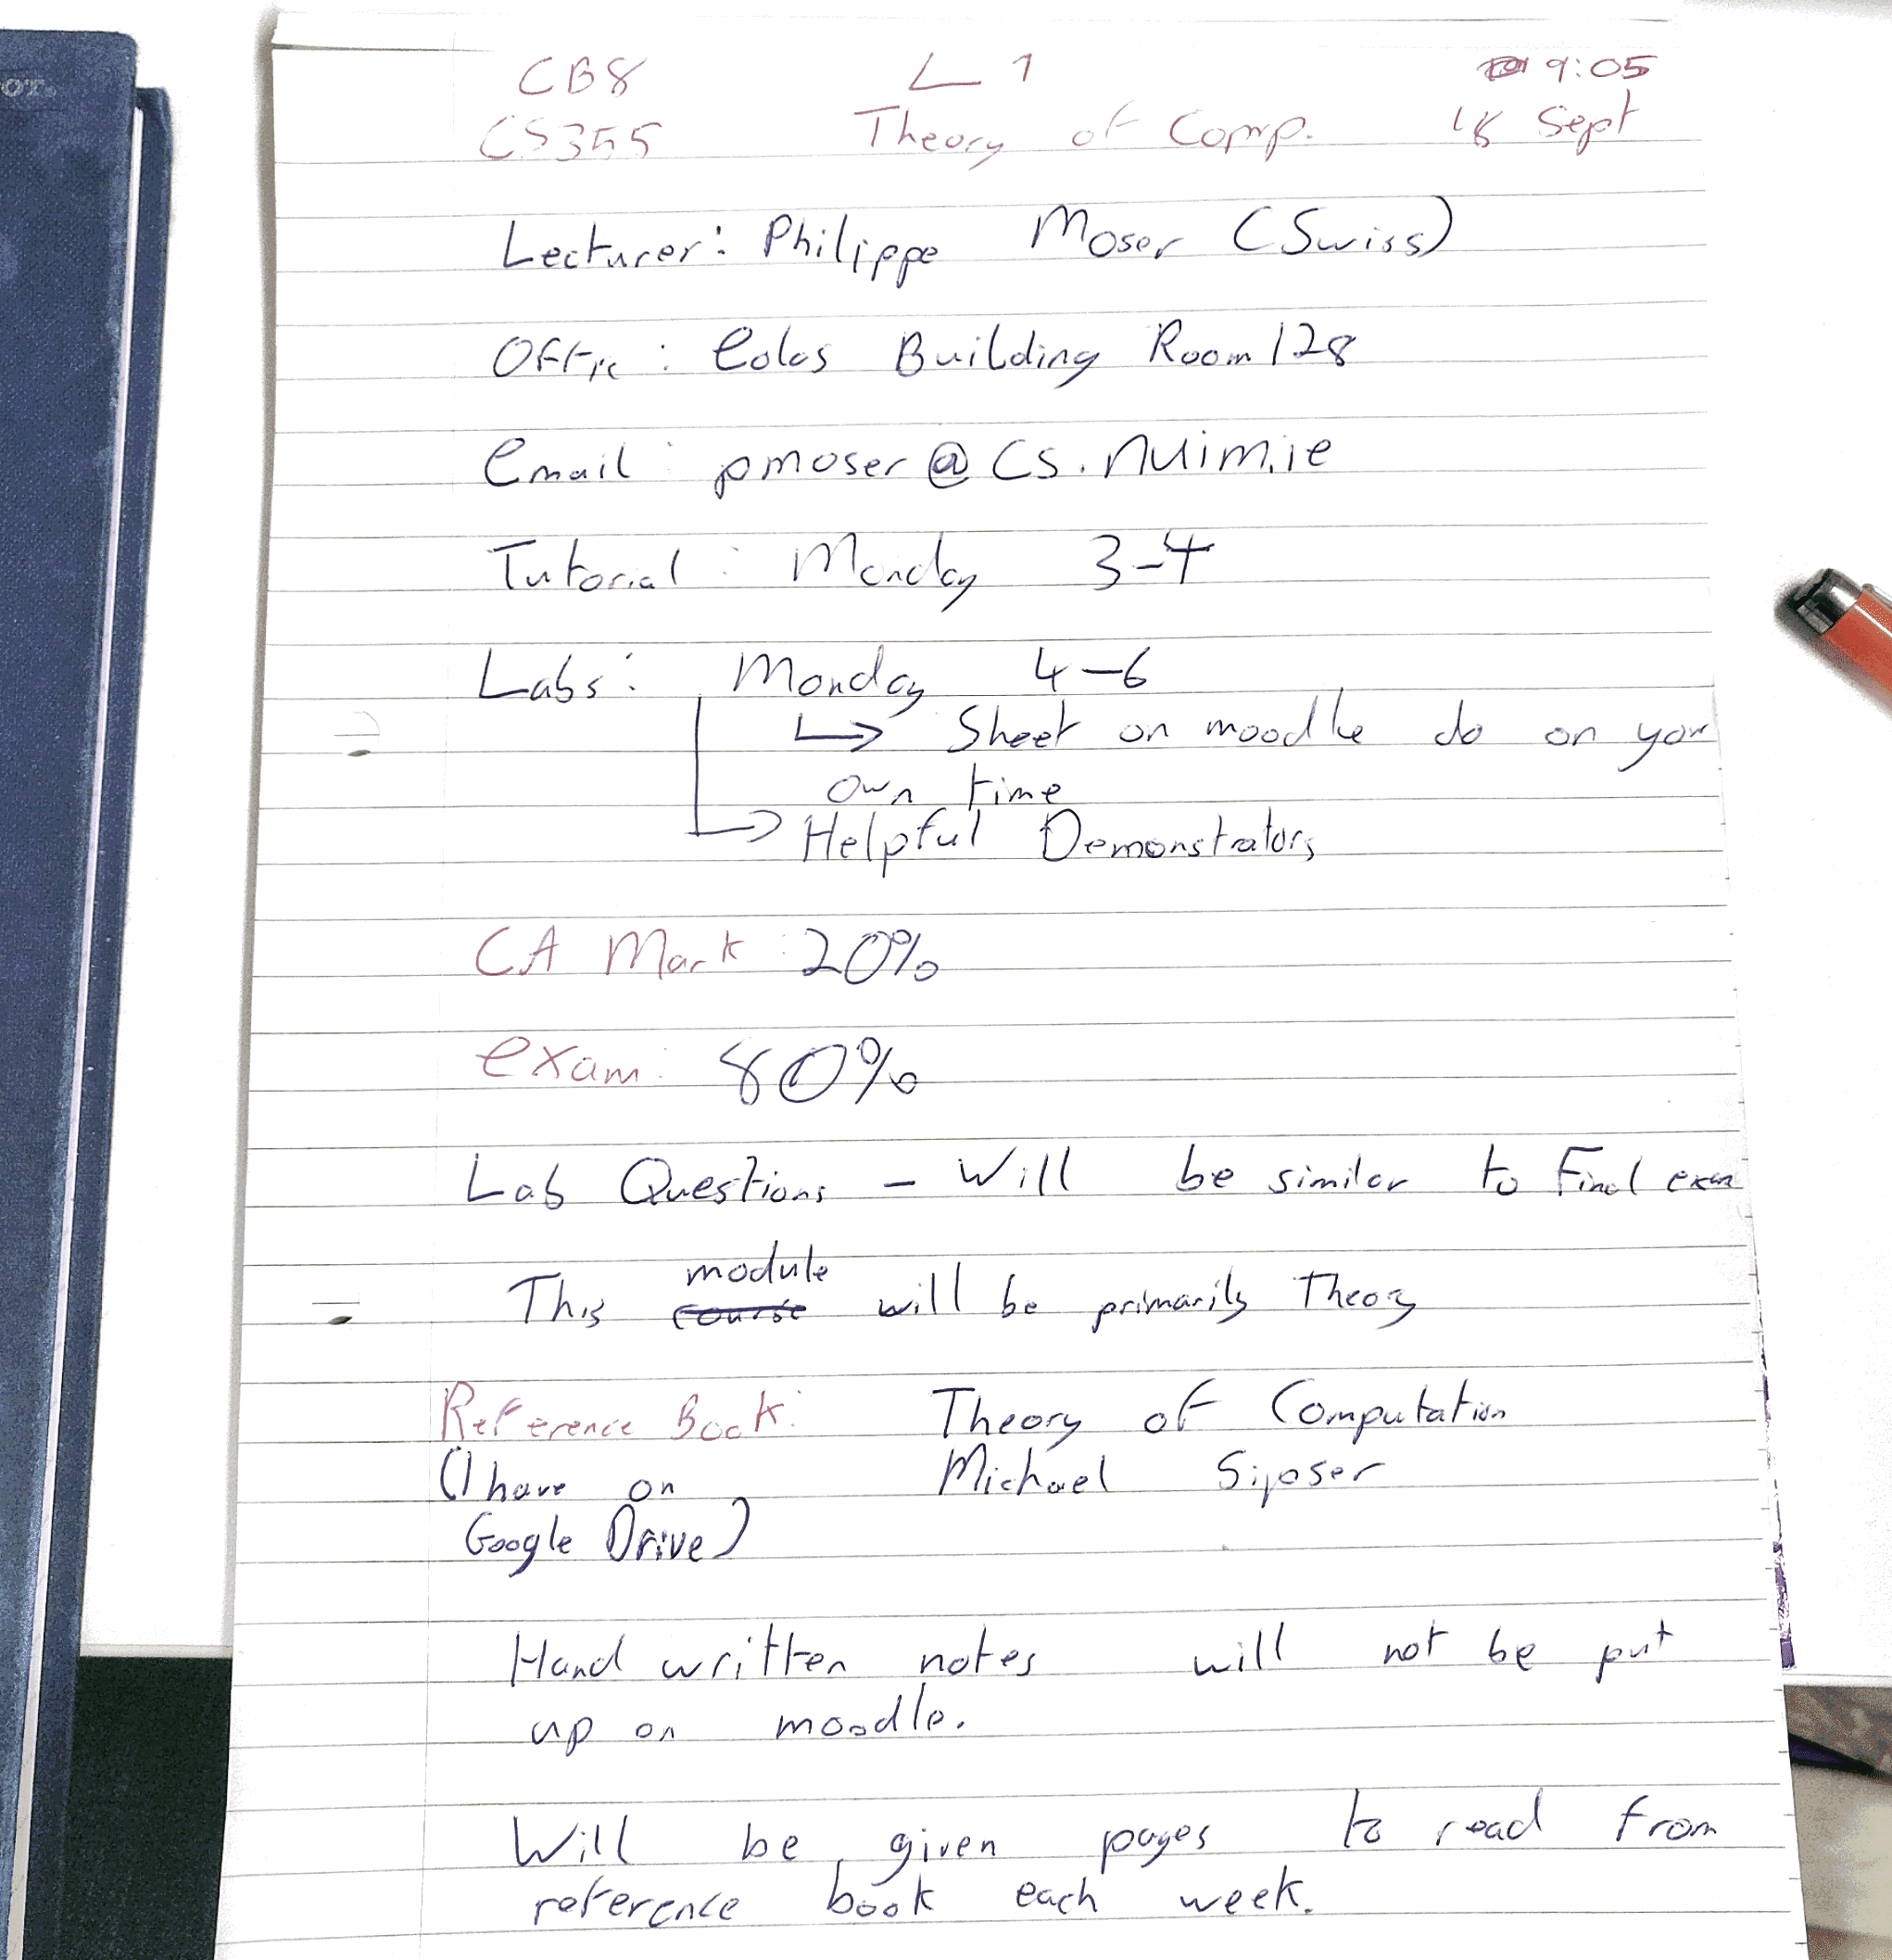 OT.
CB8 L1 9:05
CS355 Theory of Comp. 18 Sept
Lecturer: Philippe Moser (Swiss)
Offic: Eolas Building Room 128
Email: pmoser@cs.nuim.ie
Tutorial: Monday 3-4
Labs: Monday 4-6
↳ Sheet on moodle do on your
own time
↳ Helpful Demonstrators
CA Mark: 20%
Exam: 80%
Lab Questions - Will be similar to Final exam
module
This course will be primarily Theory
Reference Book: Theory of Computation
(I have on Michael Sipser
Google Drive)
Hand written notes will not be put
up on moodle.
Will be given pages to read from
reference book each week.